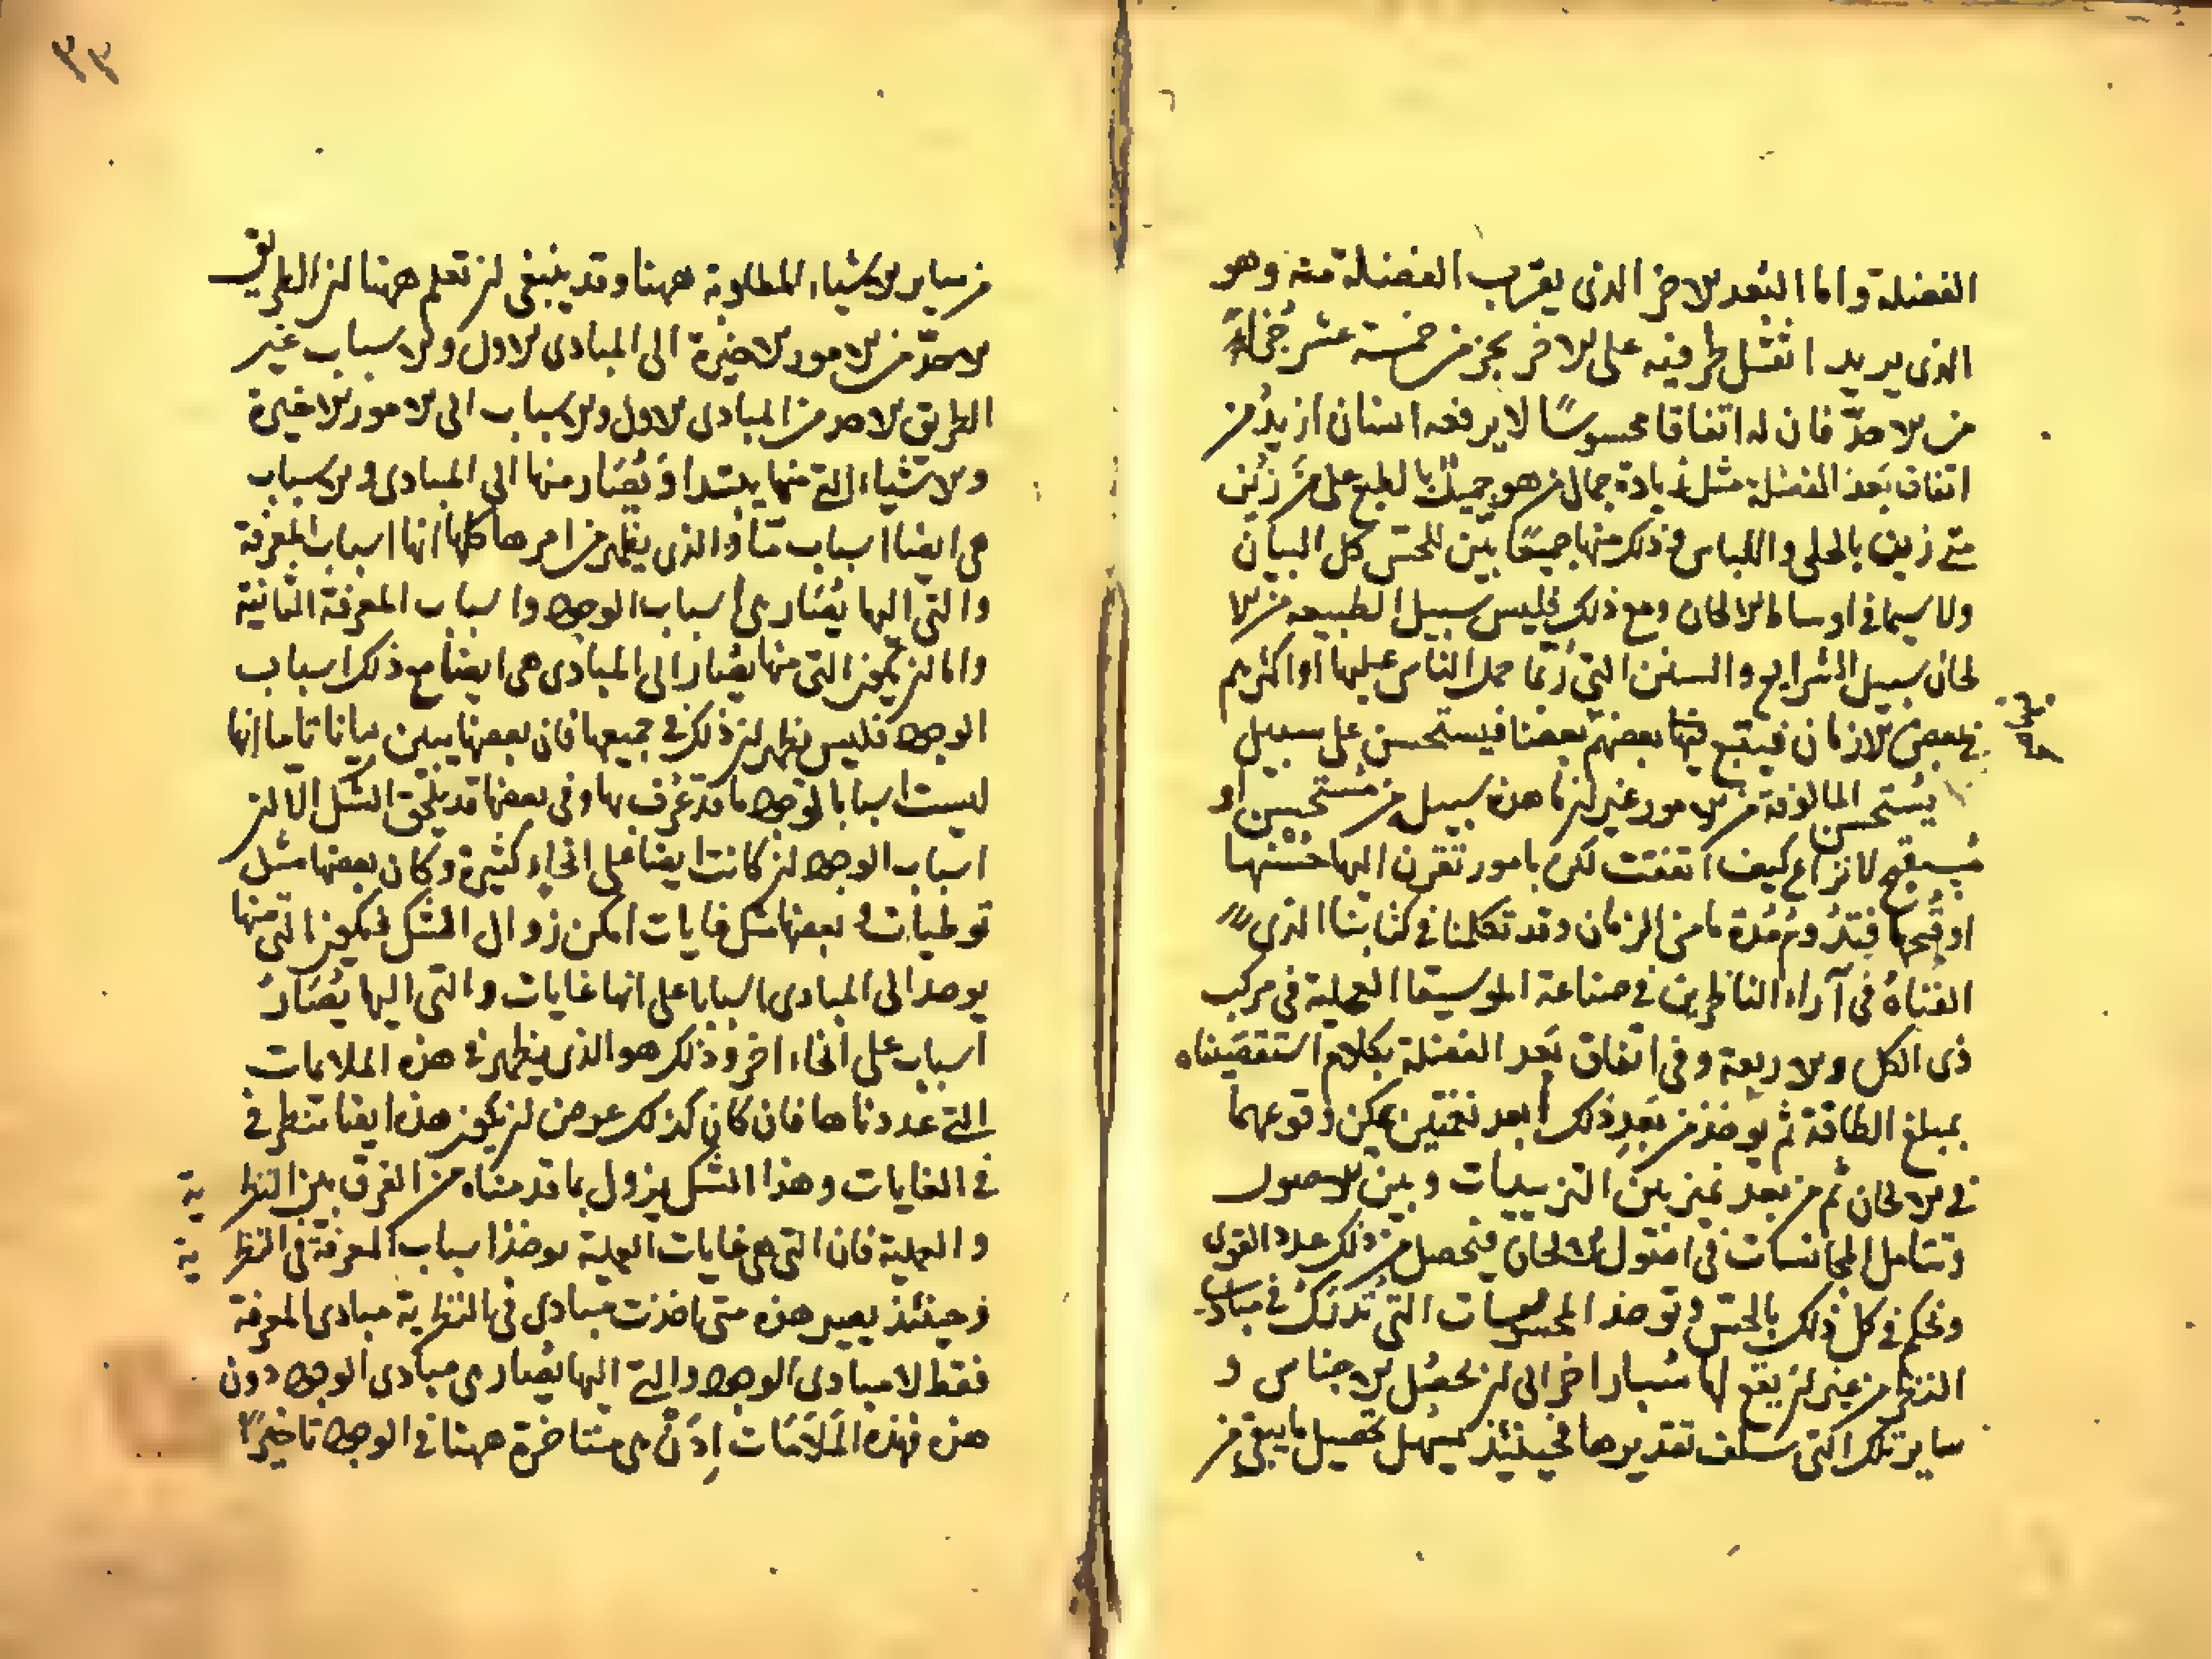 الفضلة واما البُعد الاخر الذى يقرب الفضلة منه وهو
الذى يريد اثقل طرفيه على الاخر بجز من خمسة عشر جُزاءً
من الاحدّ فان له اتفاقا محسوسًا لا يرفعه انسان ازيدُ من
اتفاق بَعد الفضلة مثل زيادة جمال من هو جميل بالطبع على من زُيّن
متى زين بالحلى واللباس وذلك منها جميعًا بيّن للحسّ كل البيان
ولا سيما فى اوساط الالحان ومع ذلك فليس سبيل الطبيعه من الا
لحان سبيل الشرايع والسنن التى ربّما حمل الناس عليها او اكثرهم
فى بعض الازمان فيتبع فيها بعضهم بعضا فيستحسن على سبيل
يستحسن المالوفة من الامور غير ان ما هذه سبيل من مستحسن او
مُستقبح لا نزاع كيف اتفقت لكن بامور تقرن اليها حسّنها
او قبّحها فتدُوم مُدة ما من الزمان وقد تكلمنا فى كتابنا الذى
الفناهُ فى آراء الناظرين فى صناعة الموسيقا العملية فى مركب
ذى الكل والاربعة وفى اتفاق بَعد الفضلة بكلام استقصيناه
بمبلغ الطاقة ثم يوخذ من بَعدِ ذلك ابعد نغمتين يمكن وقوعهما
فى الالحان ثم من بعد نميز بين التزييدات وبين الاصول
وتتامل المجانسات فى اصول الالحان فيحصل من ذلك عدد القوى
ونحكم فى كل ذلك بالحسّ وتوخذ المحسوسات التى تُدرَك فى مبادى
النظر من غير ان يقع لها مسبار اخر الى ان تحصُل الاجناس و
ساير تلك التى سلف تقديرها فحينئذ يسهل تحصيل ما يبقى من
٣٣
من ساير الاشياء المطلوبة ههنا وقد ينبغى ان تعلم ههنا ان الطريق
الاحدّ من الامور الاخيرة الى المبادى الاول والاسباب غير
الطريق الاحد من المبادى الاول والاسباب الى الامور الاخيرة
والاشياء التى منها يبتدا وَيُصَار منها الى المبادى والاسباب
هى ايضا اسباب مّا والذى يظهر من امرها كلها انها اسباب المعرفة
والتى اليها يُصَار هى اسباب الوجود واسباب المعرفة الثانية
واما ان تكون التى منها يصار الى المبادى هى ايضا مع ذلك اسباب
الوجود فليس يظهر ان ذلك فى جميعها فان بعضها يبين بيانا تاما انها
ليست اسبابا لوجود ما قد عُرف بها وفى بعضها قد يلحق الشك الّا ان
اسباب الوجود ان كانت ايضا على انحاء كثيرة وكان بعضها مثل
توطيات وبعضها مثل غايات امكن زوال الشك فيكون التى منها
يوصد الى المبادى اسبابا على انها غايات والتى اليها يُصَارُ
اسباب على انحاء اخر وذلك هو الذى يظهر فى هذه الملايمات
التى عددناها فان كان كذلك عرض ان يكون هذه ايضا تنظر فى
فى الغايات وهذا الشك يزول بما قدمناه من الفرق بين النظرية
والعملية فان التى هى غايات العملية يوخذ اسباب المعرفة فى النظرية
فحينئذ يصير هذه متى اخذت مبادى فى النظرية مبادى المعرفة
فقط لا مبادى الوجود والتى اليها يُصار هى مبادى الوجود دون
هذه فهذه الملَايَمَات اِذَنْ هى متاخرة ههنا فى الوجود تاخيرًا